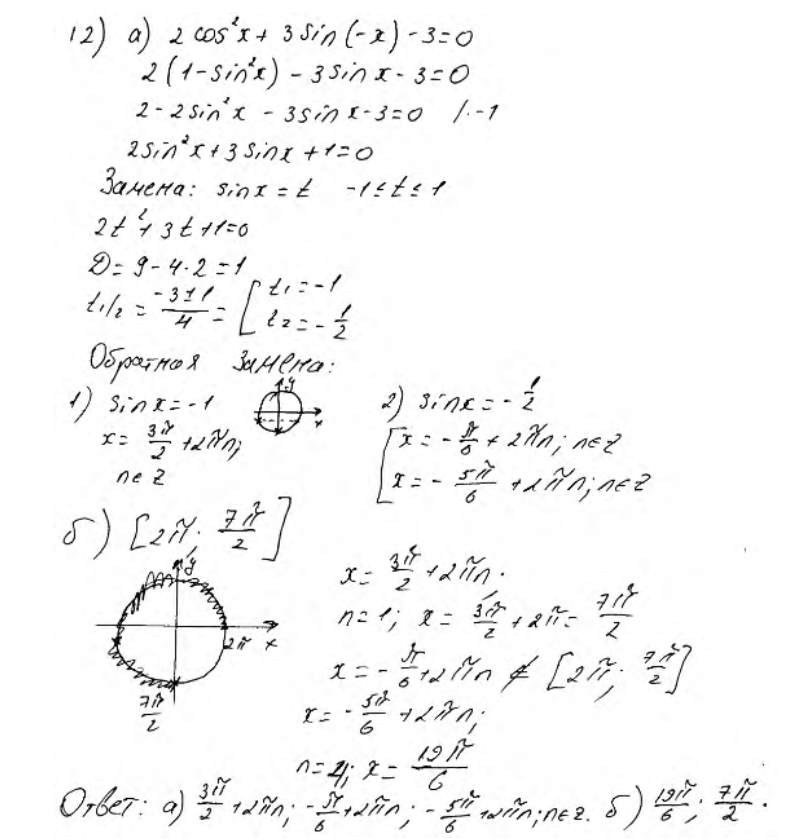 12) а) 2 cos²x + 3 sin(-x) - 3 = 0
2(1 - sin²x) - 3 sin x - 3 = 0
2 - 2 sin²x - 3 sin x - 3 = 0 /·-1
2 sin²x + 3 sin x + 1 = 0
Замена: sin x = t -1 ≤ t ≤ 1
2t² + 3t + 1 = 0
D = 9 - 4·2 = 1
t₁/₂ = (-3±1)/4 = [ t₁ = -1
t₂ = -1/2
Обратная замена:
1) sin x = -1
x = 3π/2 + 2πn;
n ∈ Z
y
x
2) sin x = -1/2
[ x = -π/6 + 2πn; n ∈ Z
x = -5π/6 + 2πn; n ∈ Z
б) [2π; 7π/2]
y
2π x
7π/2
x = 3π/2 + 2πn.
n = 1; x = 3π/2 + 2π = 7π/2
x = -π/6 + 2πn ∉ [2π; 7π/2]
x = -5π/6 + 2πn;
x = 19π/6
Ответ: а) 3π/2 + 2πn; -π/6 + 2πn; -5π/6 + 2πn; n ∈ Z. б) 19π/6; 7π/2.